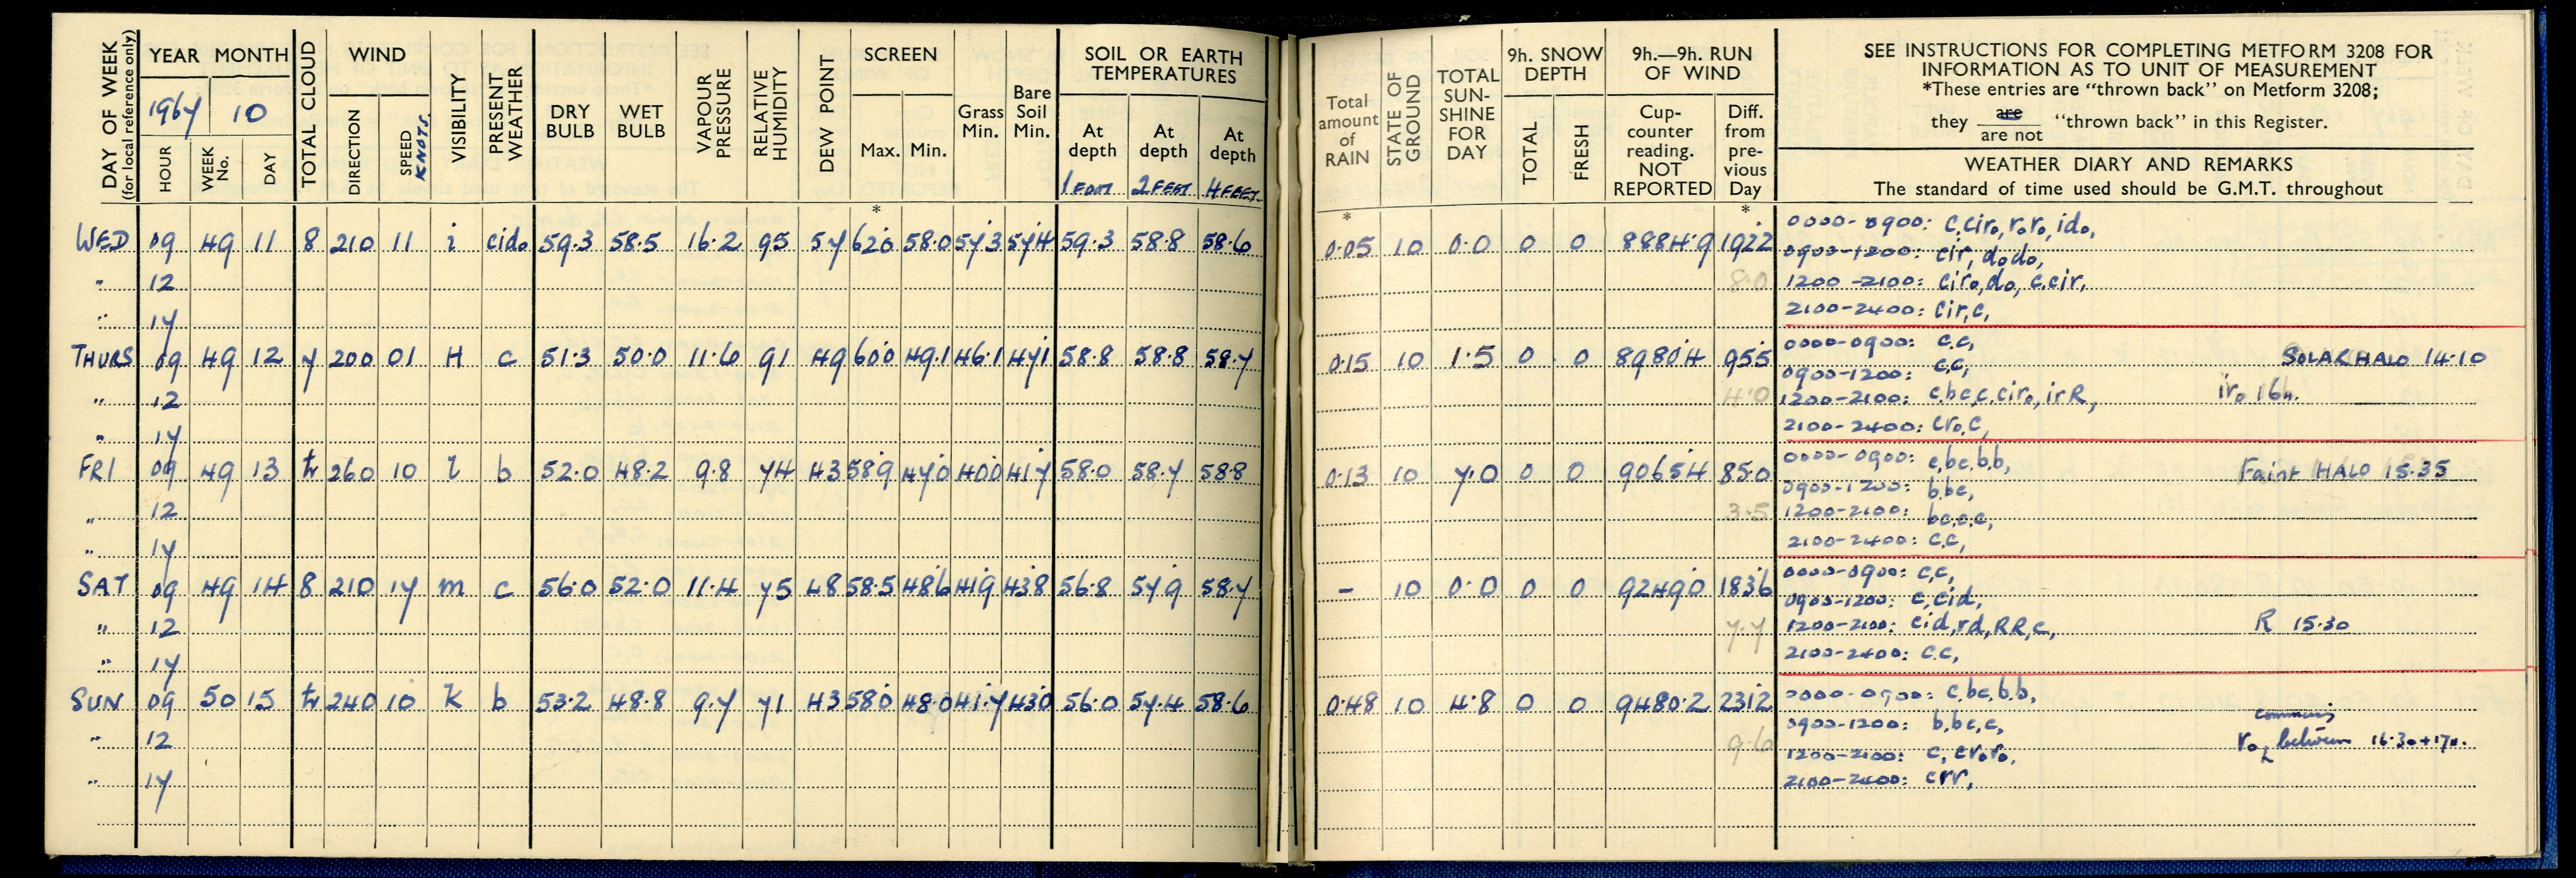 DAY OF WEEK
(for local reference only)
YEAR MONTH
1967 10
HOUR
WEEK No.
DAY
TOTAL CLOUD
WIND
DIRECTION
SPEED
KNOTS
VISIBILITY
PRESENT WEATHER
DRY BULB
WET BULB
VAPOUR PRESSURE
RELATIVE HUMIDITY
DEW POINT
SCREEN
Max. Min.
Grass Min.
Bare Soil Min.
SOIL OR EARTH TEMPERATURES
At depth 1 FOOT
At depth 2 FEET
At depth 4 FEET
Total amount of RAIN
STATE OF GROUND
TOTAL SUN-SHINE FOR DAY
9h. SNOW DEPTH
TOTAL
FRESH
9h.—9h. RUN OF WIND
Cup-counter reading. NOT REPORTED
Diff. from pre-vious Day
SEE INSTRUCTIONS FOR COMPLETING METFORM 3208 FOR
INFORMATION AS TO UNIT OF MEASUREMENT
*These entries are "thrown back" on Metform 3208;
they are / are not "thrown back" in this Register.
WEATHER DIARY AND REMARKS
The standard of time used should be G.M.T. throughout
* * *
WED 09 49 11 8 210 11 i cido 59.3 58.5 16.2 95 57 62.0 58.0 57.3 57.4 59.3 58.8 58.6 0.05 10 0.0 0 0 8884.9 192.2 0000-0900: c,ciro,roro,ido,
0900-1200: cir, dodo,
" 12 8.0 1200-2100: ciro,do, c.cir,
" 17 2100-2400: cir,c,
THURS 09 49 12 7 200 01 H c 51.3 50.0 11.6 91 49 60.0 49.1 46.1 47.1 58.8 58.8 58.7 0.15 10 1.5 0 0 8980.4 95.5 0000-0900: c.c, SOLAR HALO 14.10
0900-1200: c.c,
" 12 4.0 1200-2100: c.bc,c.ciro,irR, iro 16h.
" 17 2100-2400: cro,c,
FRI 09 49 13 tr 260 10 l b 52.0 48.2 9.8 74 43 58.9 47.0 40.0 41.7 58.0 58.7 58.8 0.13 10 7.0 0 0 9065.4 85.0 0000-0900: c,bc,b.b, Faint HALO 15.35
0900-1200: b.bc,
" 12 3.5 1200-2100: bc,c.c,
" 17 2100-2400: c.c,
SAT 09 49 14 8 210 17 m c 56.0 52.0 11.4 75 48 58.5 48.6 41.9 43.8 56.8 57.9 58.7 - 10 0.0 0 0 9249.0 183.6 0000-0900: c,c,
0900-1200: c,cid,
" 12 7.7 1200-2100: cid,rd,RR,c, R 15.30
" 17 2100-2400: c.c,
SUN 09 50 15 tr 240 10 K b 53.2 48.8 9.7 71 43 58.0 48.0 41.7 43.0 56.0 57.4 58.6 0.48 10 4.8 0 0 9480.2 231.2 0000-0900: c,bc,b.b,
0900-1200: b,bc,c,
" 12 9.6 1200-2100: c, cro.ro, ro, between 16.30+17h.
" 17 2100-2400: crr,